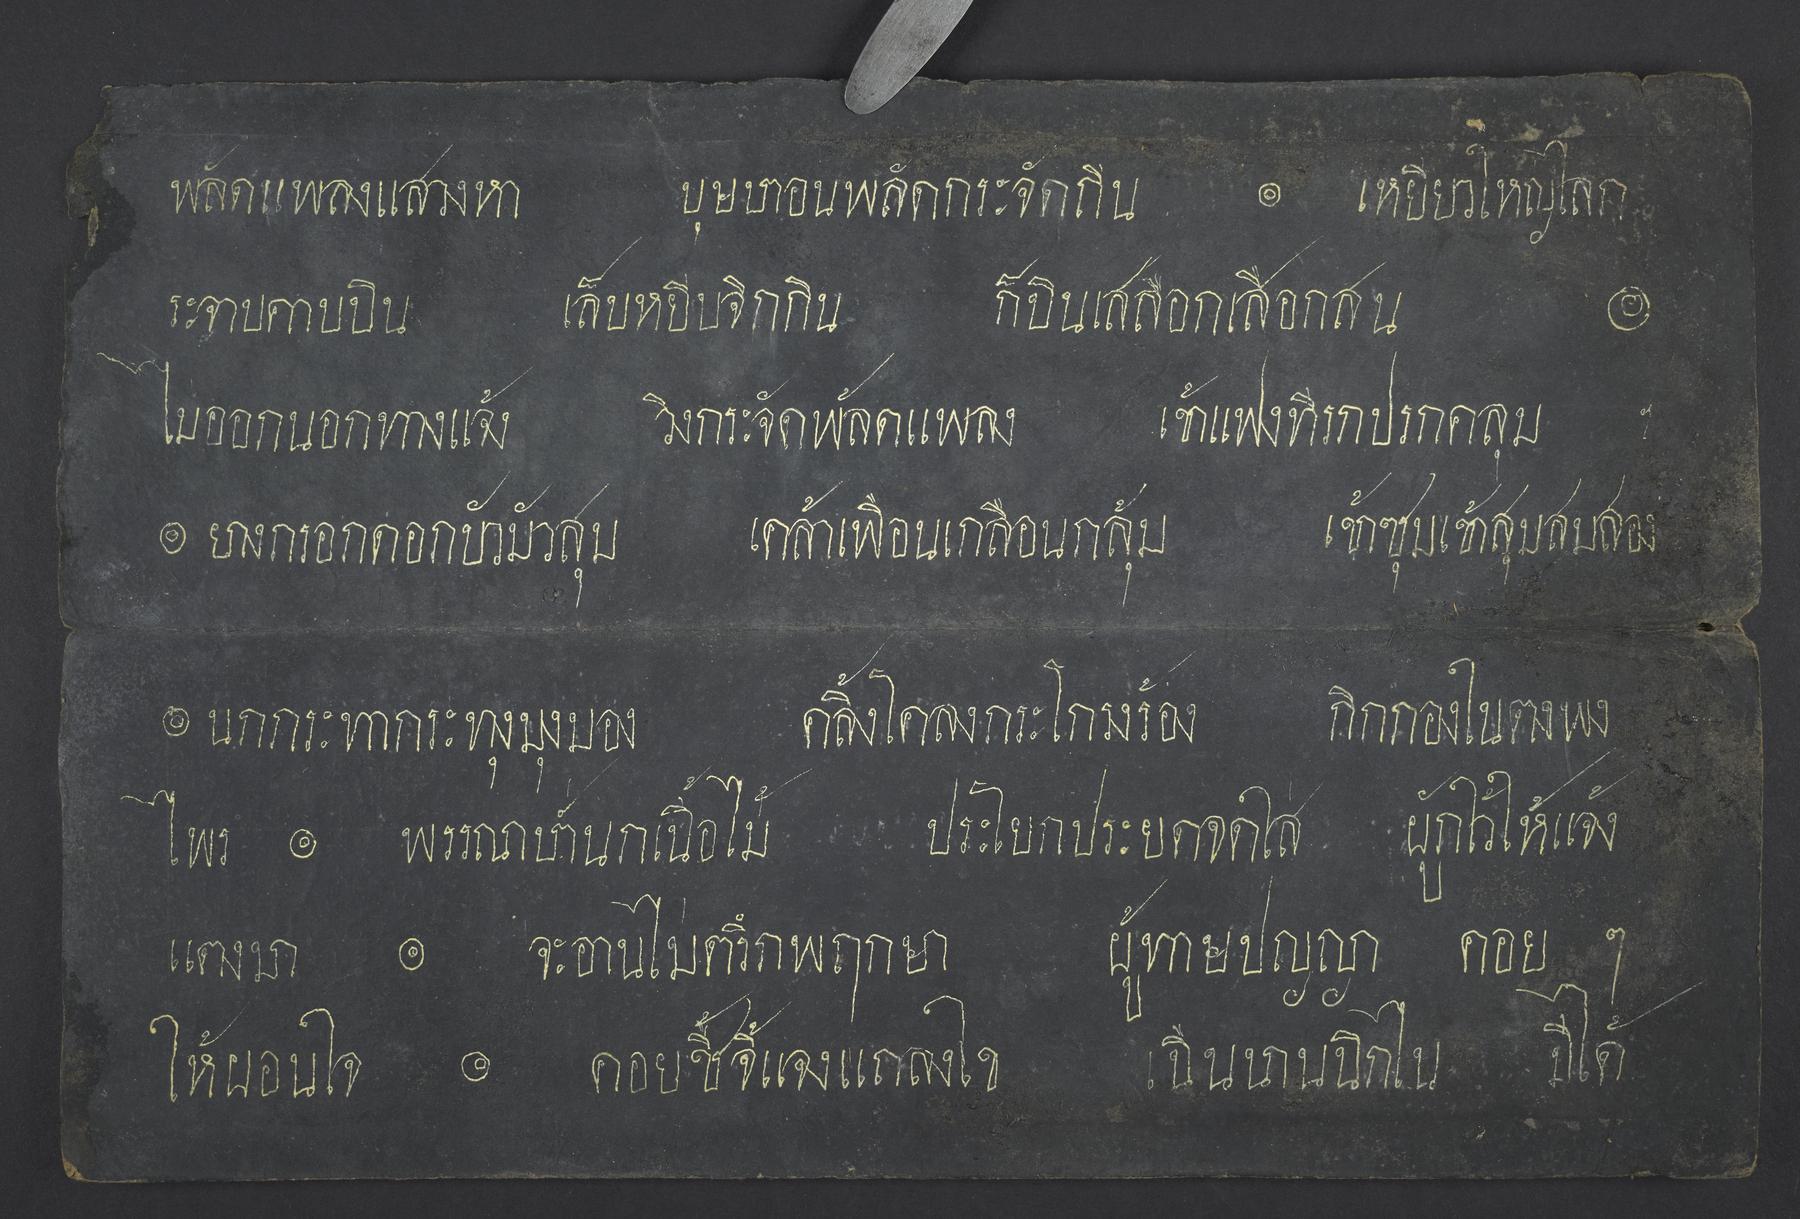 พลัดแพลงแสวงหา บุษบาอนพลัดกระจัดกิน ๏ เหยี่ยวใหญ่โลด
ระจาบคาบบิน เล็บหยิบจิกกิน ก็บินเสลือกเลือกสน ๏
ไม่ออกนอกทางแจ้ง วิ่งกระจัดพลัดแพลง เข้าแฝงที่รกปรกคลุม
๏ ยางกรอกดอกบัวมัวสุ่ม เคล้าเพื่อนเกลื่อนกลุ้ม เข้าซุ่มเข้าสุ่มสบสอง
๏ นกกระทากระทุงบุงบอง คลิ้งโคลงกระโกรงร้อง กึกกองในดงพง
ไพร ๏ พรรณาบ่านกเนื้อไม้ ประโยกประยดจดใส่ ผู้กู้ไว้ให้แจ้ง
แตงมา ๏ จะอ่านไม่ตริกพฤกษา ผู้ทายปญญา คอย ๆ
ให้ผอนใจ ๏ คอยชี้จี้แจงแถลงไข เนิ่นนานนึกไน มิได้